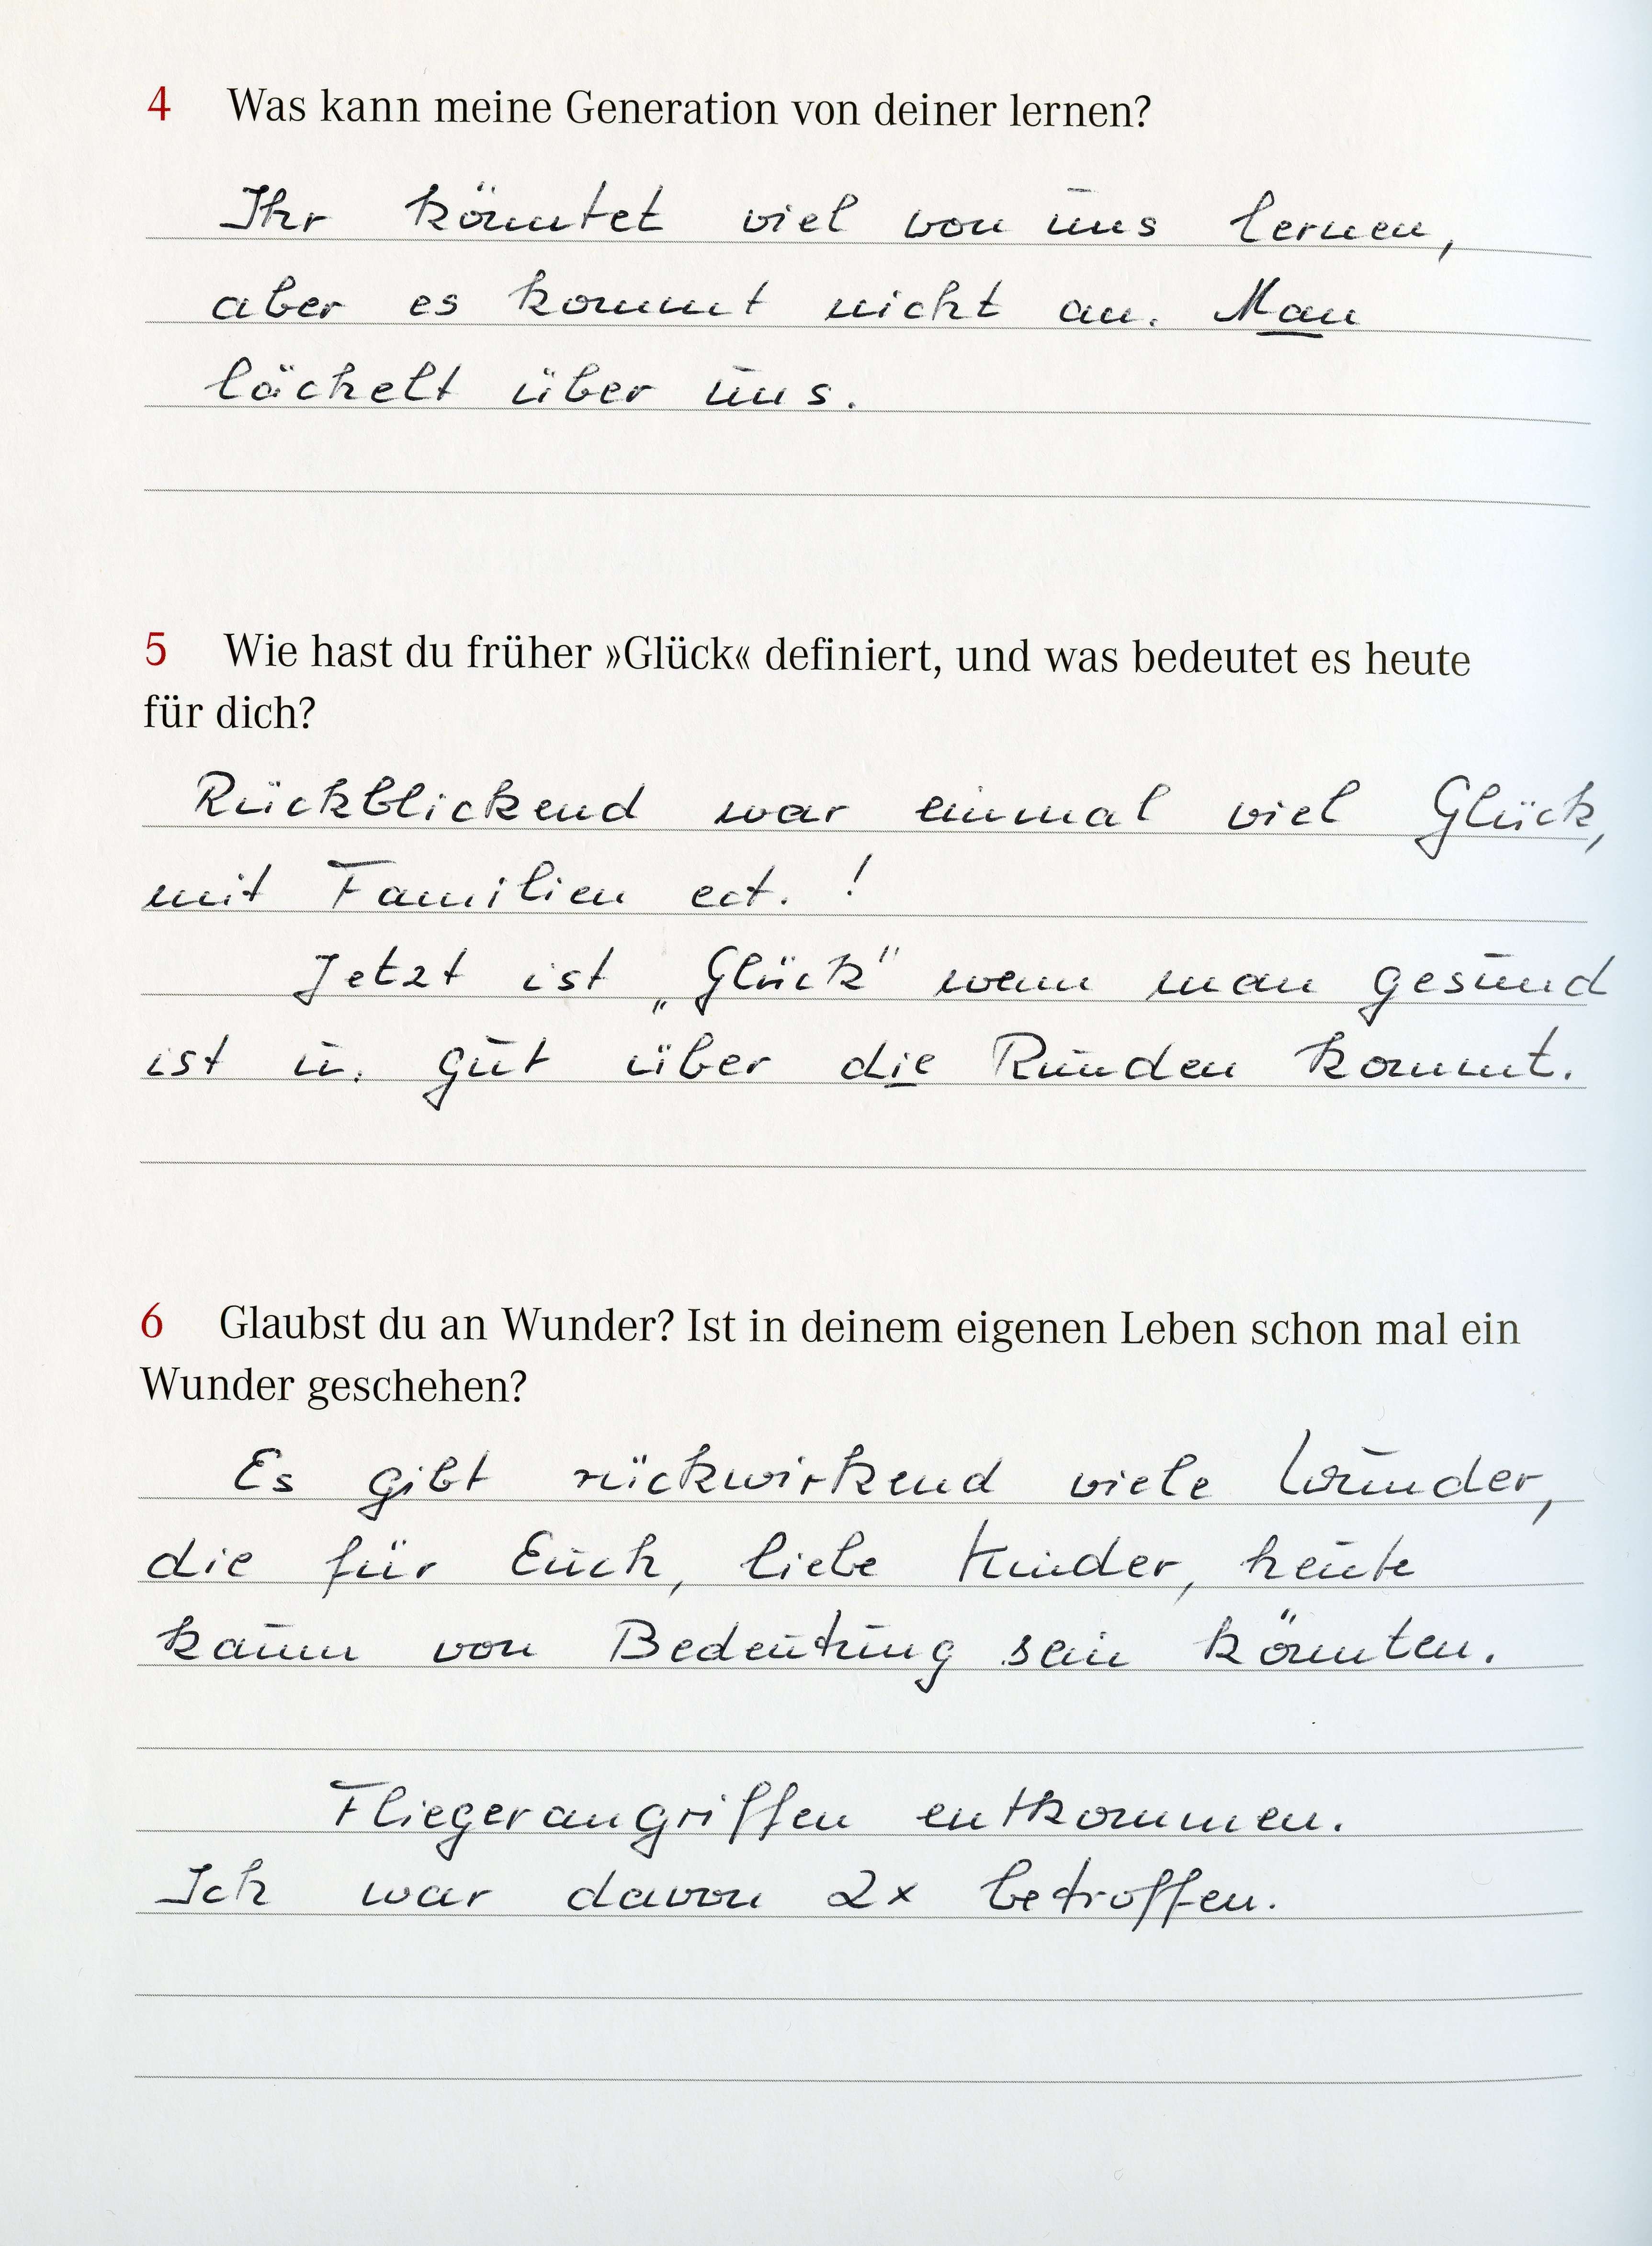 4 Was kann meine Generation von deiner lernen?
Ihr könntet viel von uns lernen,
aber es kommt nicht an. Man
lächelt über uns.
5 Wie hast du früher »Glück« definiert, und was bedeutet es heute
für dich?
Rückblickend war einmal viel Glück,
mit Familien ect. !
Jetzt ist „Glück" wenn man gesund
ist u. gut über die Runden kommt.
6 Glaubst du an Wunder? Ist in deinem eigenen Leben schon mal ein
Wunder geschehen?
Es gibt rückwirkend viele Wunder,
die für Euch, liebe Kinder, heute
kaum von Bedeutung sein könnten.
Fliegerangriffen entkommen.
Ich war davon 2x betroffen.